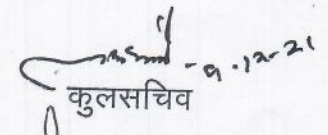 -9.12-21
कुलसचिव